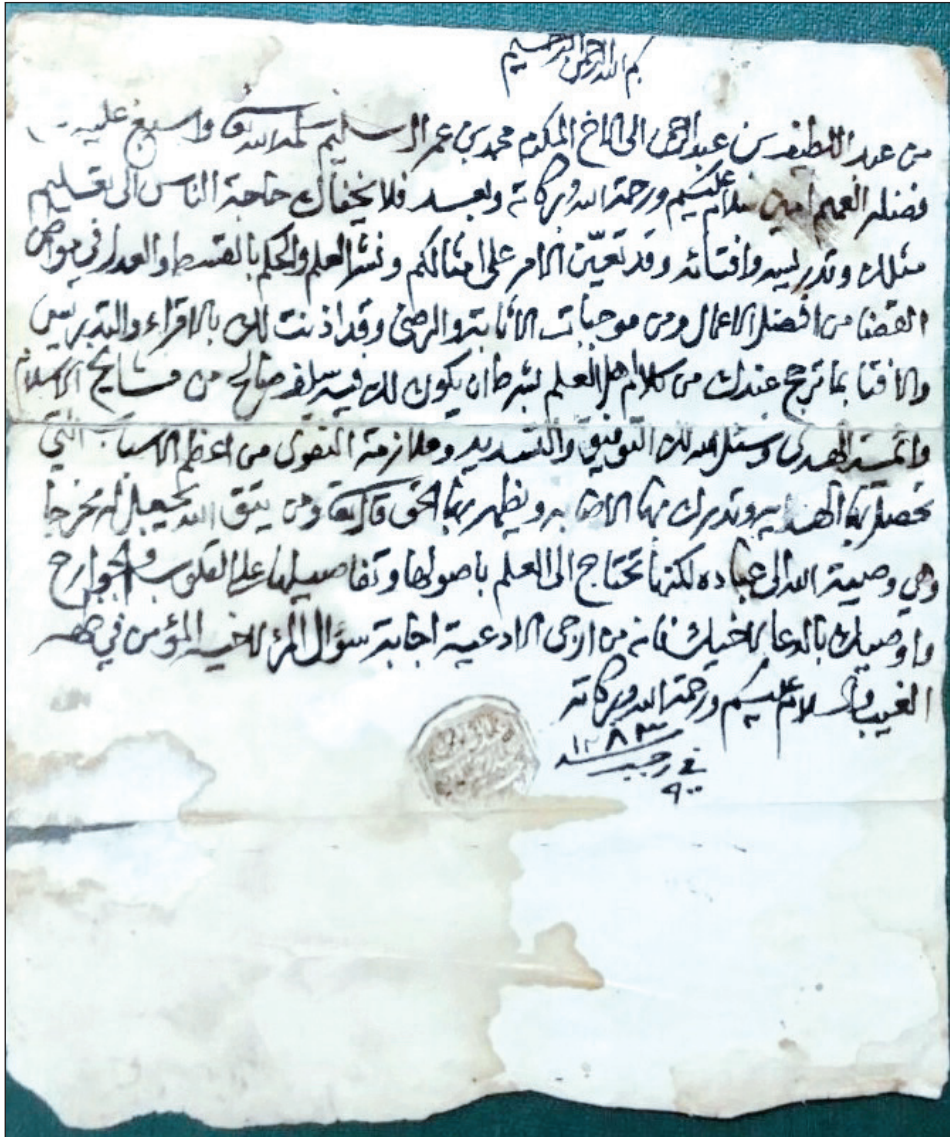 بسم الله الرحمن الرحيم
من عبد اللطيف بن عبد الرحمن الى الاخ المكرم محمد بن عمر ال سليم سلمه الله تعا واسبغ عليه من
فضله العميم امين سلام عليكم ورحمة الله وبركاته وبعد فلا يخفاك حاجة الناس الى تعليم
مثلك وتدريسه وافتائه وقد تعيّن الامر على امثالكم ونشر العلم والحكم بالقسط والعدل في مواضع
القضا من افضل الاعمال ومن موجبات الاثابة والرضى وقد اذنت لك بالاقراء والتدريس
والافتا بما ترجح عندك من كلام اهل العلم بشرط ان يكون لك فيه سلف صالح من مشايخ الاسلام
وائمة الهدى ونسئل الله لك التوفيق والتسديد وملازمة التقوى من اعظم الاسباب التي
تحصل بها الهداية وتدرك بها الاصابه ويظهر بها الحق قال تعا ومن يتق الله يجعل له مخرجا
وهي وصية الله الى عباده لكنها تحتاج الى العلم باصولها وتفاصيلها على القلوب والجوارح
واوصيك بالدعا لاخيك فانه من ارجى الادعية اجابة سؤال المرء لاخيه المؤمن في ظهر
الغيب والسلام عليكم ورحمة الله وبركاته
١٢٨٣
في رجب